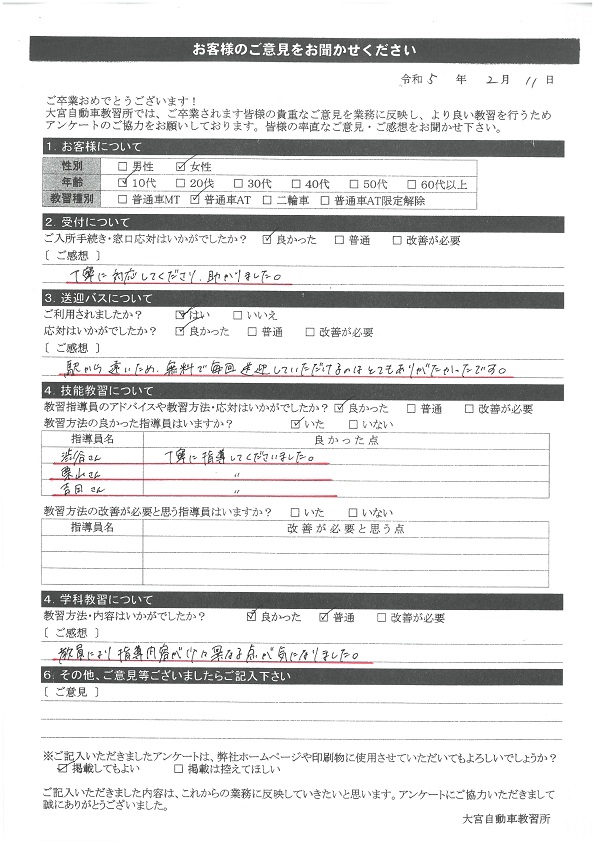 お客様のご意見をお聞かせください
令和 5 年 2 月 11 日
ご卒業おめでとうございます！
大宮自動車教習所では、ご卒業されます皆様の貴重なご意見を業務に反映し、より良い教習を行うため
アンケートのご協力をお願いしております。皆様の率直なご意見・ご感想をお聞かせ下さい。
1. お客様について
性別 □男性 ☑女性
年齢 ☑10代 □20代 □30代 □40代 □50代 □60代以上
教習種別 □普通車MT ☑普通車AT □二輪車 □普通車AT限定解除
2. 受付について
ご入所手続き・窓口応対はいかがでしたか？ ☑良かった □普通 □改善が必要
〔ご感想〕
丁寧に対応してくださり、助かりました。
3. 送迎バスについて
ご利用されましたか？ ☑はい □いいえ
応対はいかがでしたか？ ☑良かった □普通 □改善が必要
〔ご感想〕
駅から遠いため、無料で毎回送迎していただけるのはとてもありがたかったです。
4. 技能教習について
教習指導員のアドバイスや教習方法・応対はいかがでしたか？ ☑良かった □普通 □改善が必要
教習方法の良かった指導員はいますか？ ☑いた □いない
指導員名 良かった点
渋谷さん 丁寧に指導してくださいました。
栗山さん 〃
吉田さん 〃
教習方法の改善が必要と思う指導員はいますか？ □いた □いない
指導員名 改善が必要と思う点
4. 学科教習について
教習方法・内容はいかがでしたか？ ☑良かった ☑普通 □改善が必要
〔ご感想〕
教員により指導内容が異なる点が気になりました。
6. その他、ご意見等ございましたらご記入下さい
〔ご意見〕
※ご記入いただきましたアンケートは、弊社ホームページや印刷物に使用させていただいてもよろしいでしょうか？
☑掲載してもよい □掲載は控えてほしい
ご記入いただきました内容は、これからの業務に反映していきたいと思います。アンケートにご協力いただきまして
誠にありがとうございました。
大宮自動車教習所